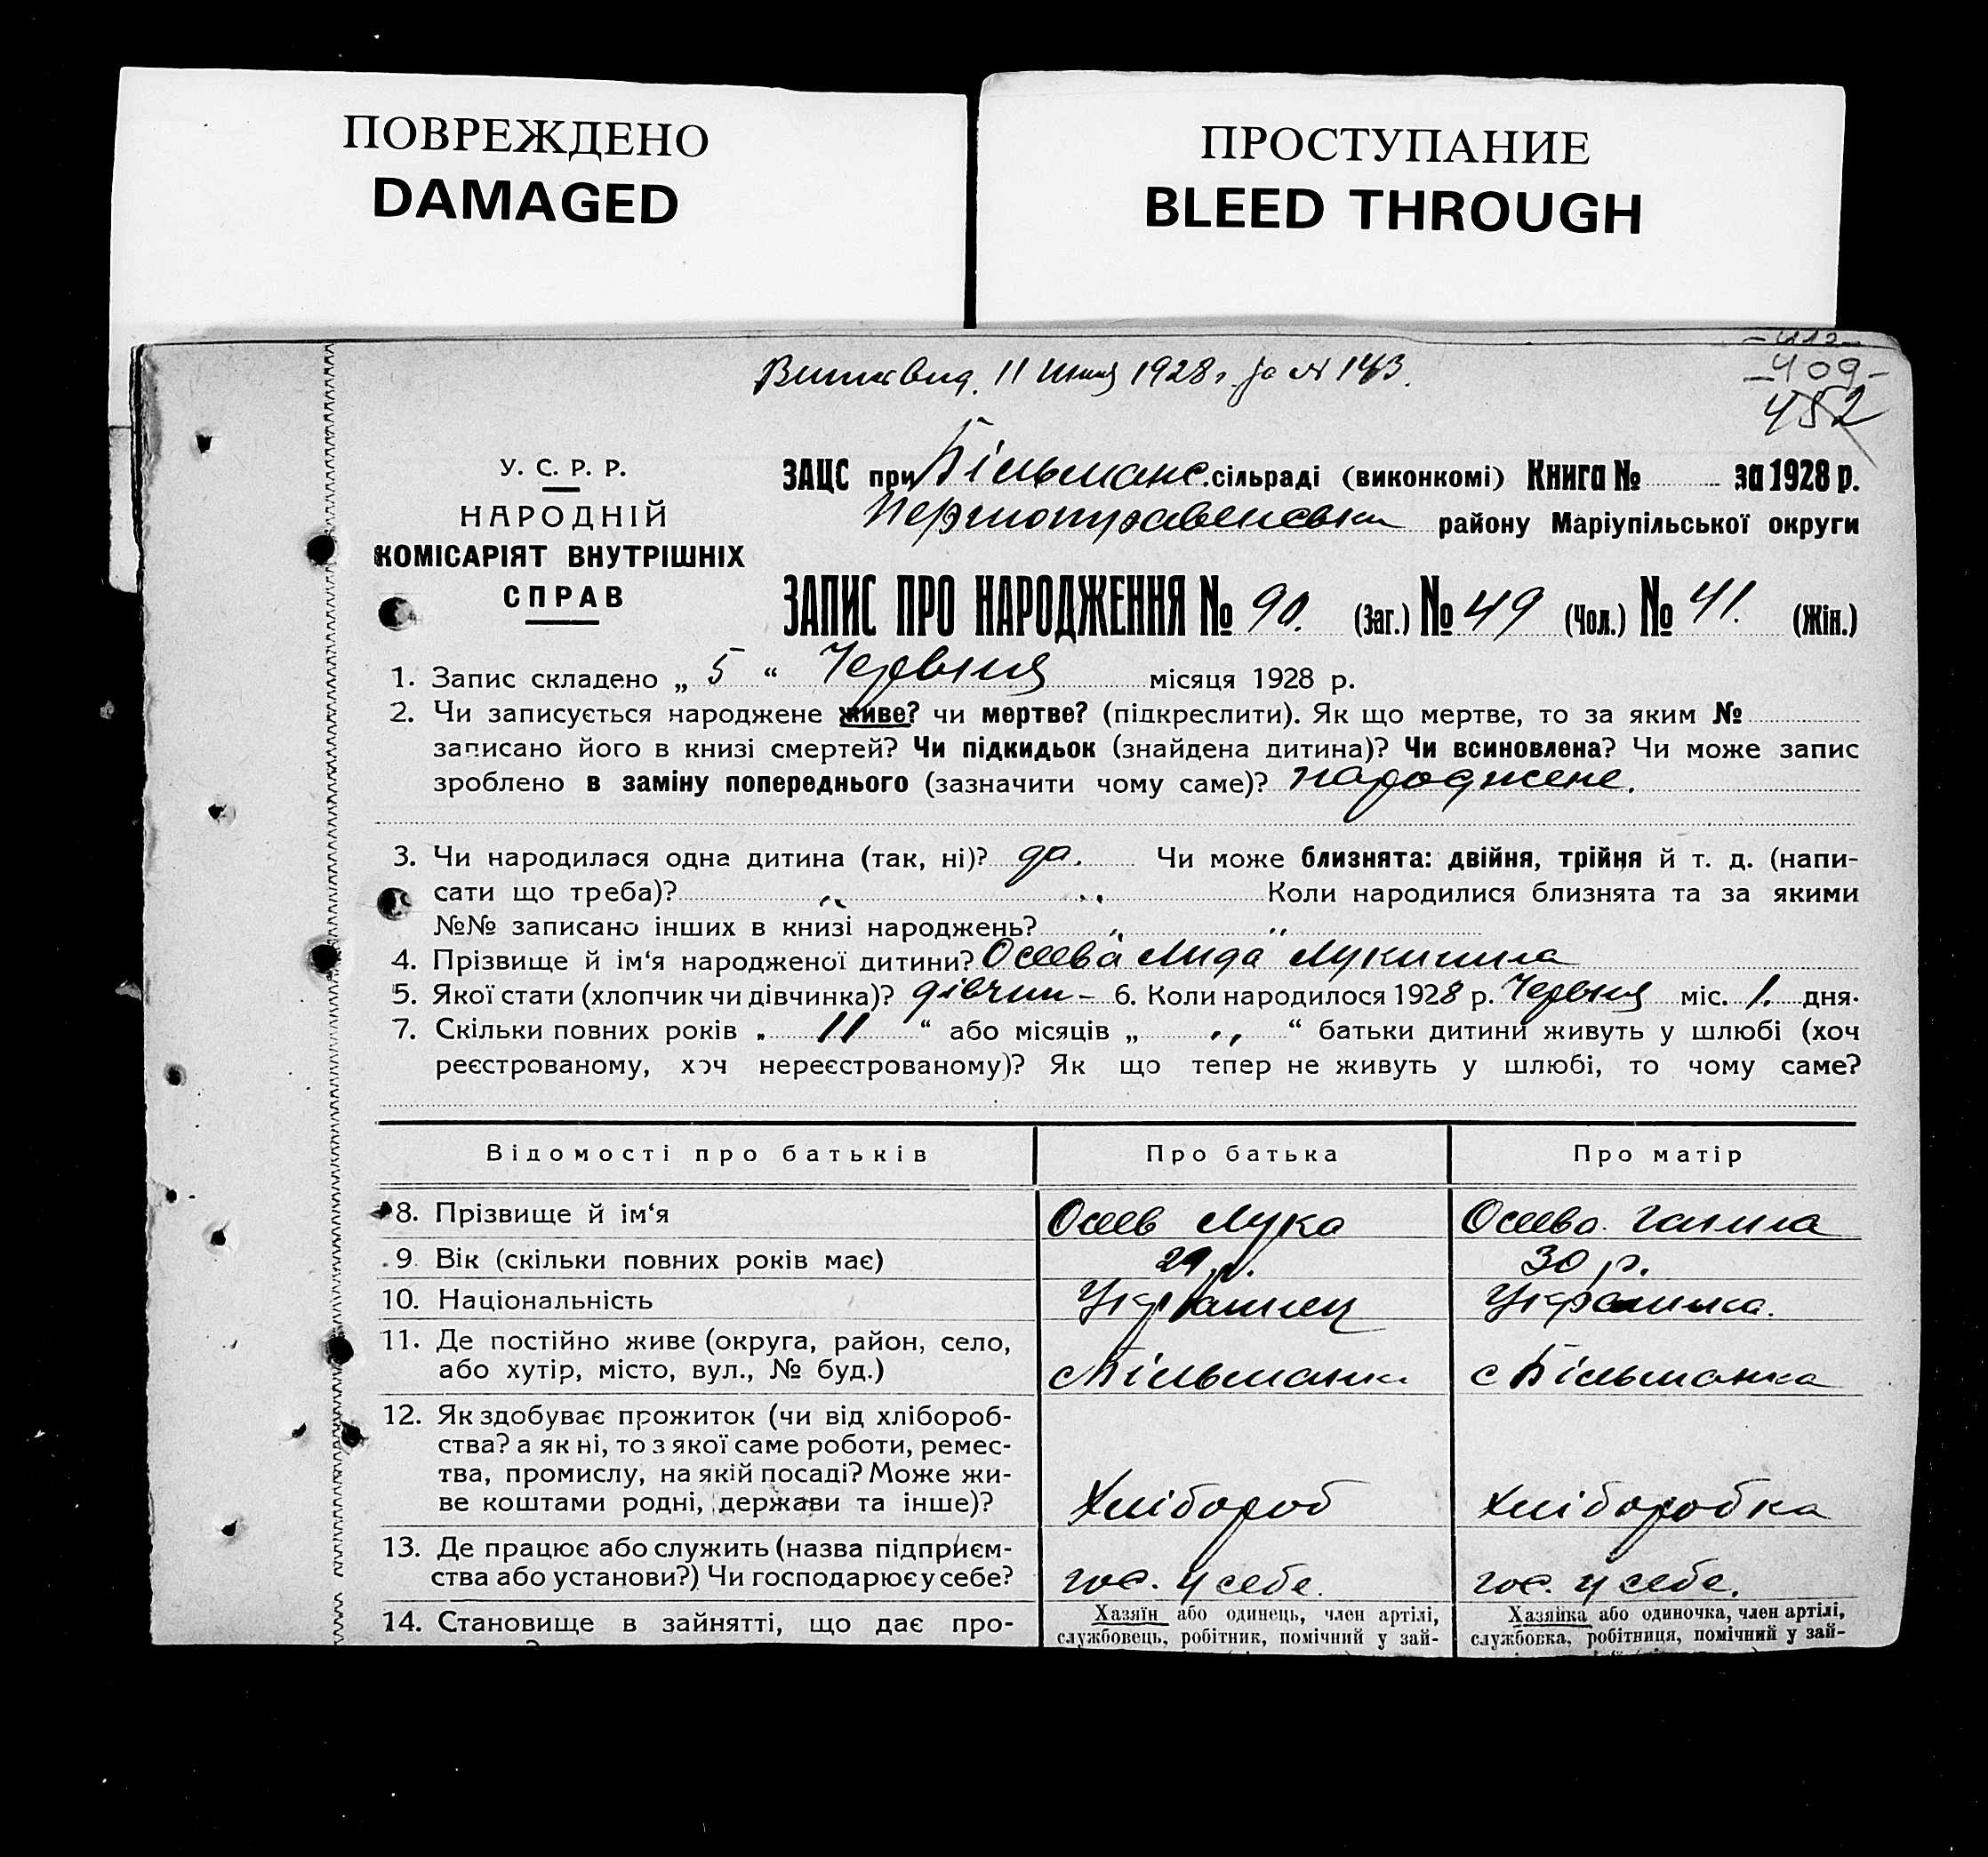 ПОВРЕЖДЕНО
DAMAGED
ПРОСТУПАНИЕ
BLEED THROUGH
11 1928 г. за № 143.
409
452
У. С. Р. Р.
НАРОДНІЙ
КОМІСАРІЯТ ВНУТРІШНІХ
СПРАВ
ЗАЦС при Більманс. сільраді (виконкомі) Книга № за 1928 р.
району Маріупільської округи
ЗАПИС ПРО НАРОДЖЕННЯ № 90. (Заг.) № 49 (Чол.) № 41. (Жін.)
1. Запис складено „ 5 “ Червня місяця 1928 р.
2. Чи записується народжене живе? чи мертве? (підкреслити). Як що мертве, то за яким №
записано його в книзі смертей? Чи підкидьок (знайдена дитина)? Чи всиновлена? Чи може запис
зроблено в заміну попереднього (зазначити чому саме)? народжене.
3. Чи народилася одна дитина (так, ні)? да. Чи може близнята: двійня, трійня й т. д. (напи-
сати що треба)? „ „ Коли народилися близнята та за якими
№№ записано інших в книзі народжень? „ „
4. Прізвище й ім‘я народженої дитини? Осеева Лида Лукинина
5. Якої стати (хлопчик чи дівчинка)? дівчин- 6. Коли народилося 1928 р. Червня міс. 1. дня.
7. Скільки повних років „ 11 “ або місяців „ „ “ батьки дитини живуть у шлюбі (хоч
реєстрованому, хоч нереєстрованому)? Як що тепер не живуть у шлюбі, то чому саме?
Відомості про батьків Про батька Про матір
8. Прізвище й ім‘я Осеев Лука Осеева Галина
9. Вік (скільки повних років має) 29 р. 30 р.
10. Національність Українец Українка.
11. Де постійно живе (округа, район, село,
або хутір, місто, вул., № буд.) с Більманка с Більманка
12. Як здобуває прожиток (чи від хлібороб-
ства? а як ні, то з якої саме роботи, ремес-
тва, промислу, на якій посаді? Може жи-
ве коштами родні, держави та інше)? Хлібороб Хліборобка
13. Де працює або служить (назва підприєм-
ства або установи?) Чи господарює у себе? гос. у себе. гос. у себе.
14. Становище в зайнятті, що дає про-
Хазяїн або одинець, член артілі,
службовець, робітник, помічний у зай-
Хазяйка або одиночка, член артілі,
службовка, робітниця, помічний у зай-